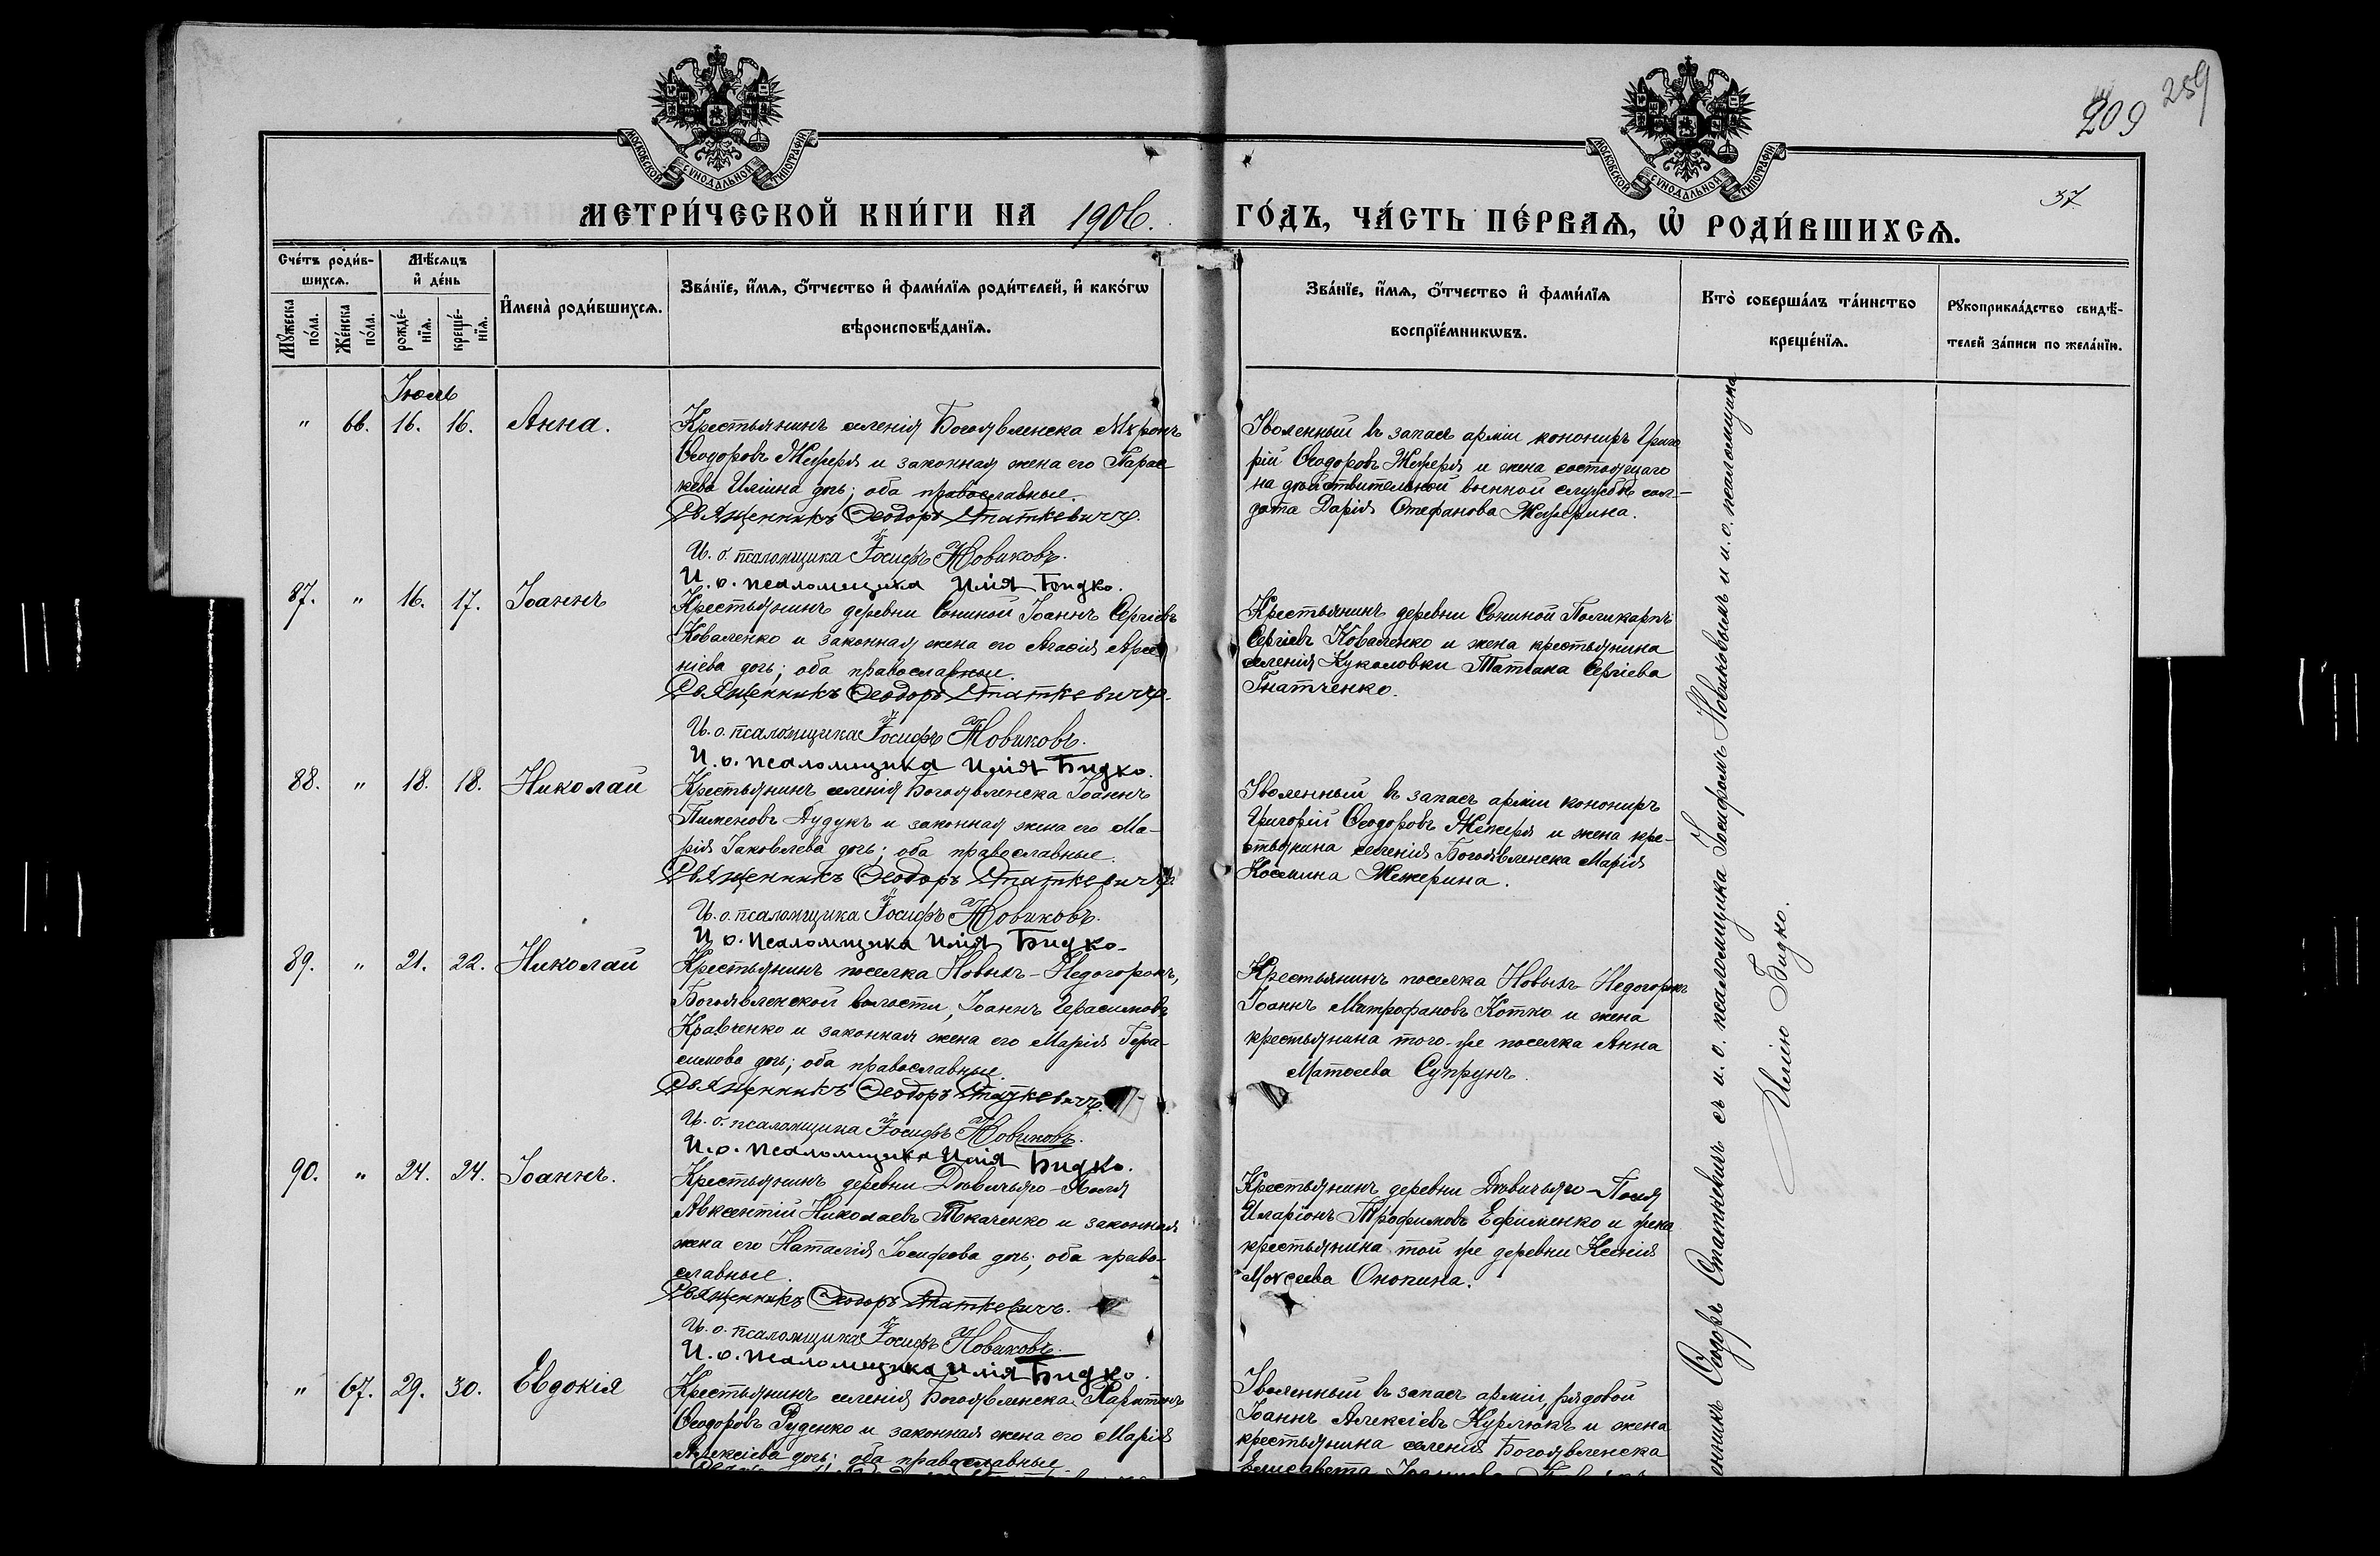 209 259
37
МОСКОВСКОЙ СУНОДАЛЬНОЙ ТИПОГРАФІИ
МОСКОВСКОЙ СУНОДАЛЬНОЙ ТИПОГРАФІИ
МЕТРИ́ЧЕСКОЙ КНИ́ГИ НА 1906.
ГО́ДЪ, ЧА́СТЬ ПЕ́РВАѦ, Ѡ҆ РОДИ́ВШИХСѦ.
Сче́тъ роди́в-
шихсѧ.
Мꙋ́жеска
по́ла.
Же́нска
по́ла.
Мѣ́сѧцъ
и҆ де́нь
рожде́-
нїѧ.
креще́-
нїѧ.
И҆мена̀ роди́вшихсѧ.
Зва́нїе, и҆́мѧ, ѻ҆́тчество и҆ фами́лїѧ роди́телей, и҆ како́гѡ
вѣроисповѣ́данїѧ.
Зва́нїе, и҆́мѧ, ѻ҆́тчество и҆ фами́лїѧ
воспрїе́мникѡвъ.
Кто̀ соверша́лъ та́инство
креще́нїѧ.
Рꙋкоприкла́дство свидѣ́-
телей за́писи по жела́нїю.
Іюль
" 66. 16. 16. Анна.
Крестьянинъ селенія Богоявленска Мѵронъ
Ѳеодоровъ Жежеря и законная жена его Парас
кева Иліина дочь; оба православные.
Священникъ Ѳеодоръ Статкевичъ.
И. о. псаломщика Іосифъ Новиковъ.
И. о. псаломщика Илія Бидко.
Уволенный въ запасъ арміи кононир Григо
рій Ѳеодоровъ Жежеря и жена состоящаго
на дѣйствительной военной службѣ сол-
дата Дарія Стефанова Жежерина.
87. " 16. 17. Іоаннъ
Крестьянинъ деревни Сониной Іоаннъ Сергіевъ
Коваленко и законная жена его Агаѳія Арсе
ніева дочь; оба православные.
Священникъ Ѳеодоръ Статкевичъ.
И. о. псаломщика Іосифъ Новиковъ.
И. о. псаломщика Илія Бидко.
Крестьянинъ деревни Сониной Поликарпъ
Сергіевъ Коваленко и жена крестьянина
селенія Кукаловки Татіана Сергіева
Гнатченко.
88. " 18. 18. Николай
Крестьянинъ селенія Богоявленска Іоаннъ
Пименовъ Дудукъ и законная жена его Ма-
рія Іаковлева дочь; оба православные.
Священникъ Ѳеодоръ Статкевичъ.
И. о. псаломщика Іосифъ Новиковъ.
И о. псаломщика Илія Бидко.
Уволенный въ запасъ арміи кононир
Григорій Ѳеодоровъ Жежеря и жена кре-
стьянина селенія Богоявленска Марія
Косьмина Жежерина.
89. " 21. 22. Николай
Крестьянинъ поселка Новыхъ-Недогорокъ,
Богоявленской волости, Іоаннъ Герасимовъ
Кравченко и законная жена его Марія Гера-
симова дочь; оба православные.
Священникъ Ѳеодоръ Статкевичъ.
И. о. псаломщика Іосифъ Новиковъ.
И. о. псаломщика Илія Бидко.
Крестьянинъ поселка Новыхъ-Недогорокъ
Іоаннъ Митрофановъ Котко и жена
крестьянина того-же поселка Анна
Матѳеева Супрунъ.
90. " 24. 24. Іоаннъ.
Крестьянинъ деревни Дѣвичьяго-Поля
Авксентій Николаевъ Ткаченко и законная
жена его Наталія Іосифова дочь; оба право-
славные.
Священникъ Ѳеодоръ Статкевичъ.
И. о. псаломщика Іосифъ Новиковъ.
И. о. псаломщика Илія Бидко.
Крестьянинъ деревни Дѣвичьяго-Поля
Иларіонъ Трофимовъ Ефименко и жена
крестьянина той же деревни Ксенія
Моѵсеева Онопина.
" 67. 29. 30. Евдокія
Крестьянинъ селенія Богоявленска Харитонъ
Ѳеодоровъ Руденко и законная жена его Марія
Алексіева дочь; оба православные.
Уволенный въ запасъ арміи, рядовой
Іоаннъ Алексіевъ Курлюкъ и жена
крестьянина селенія Богоявленска
Елисавета
Ѳеодоръ Статкевичъ съ и. о. псаломщика Іосифомъ Новиковымъ и и. о. псаломщика
Иліею Бидко.